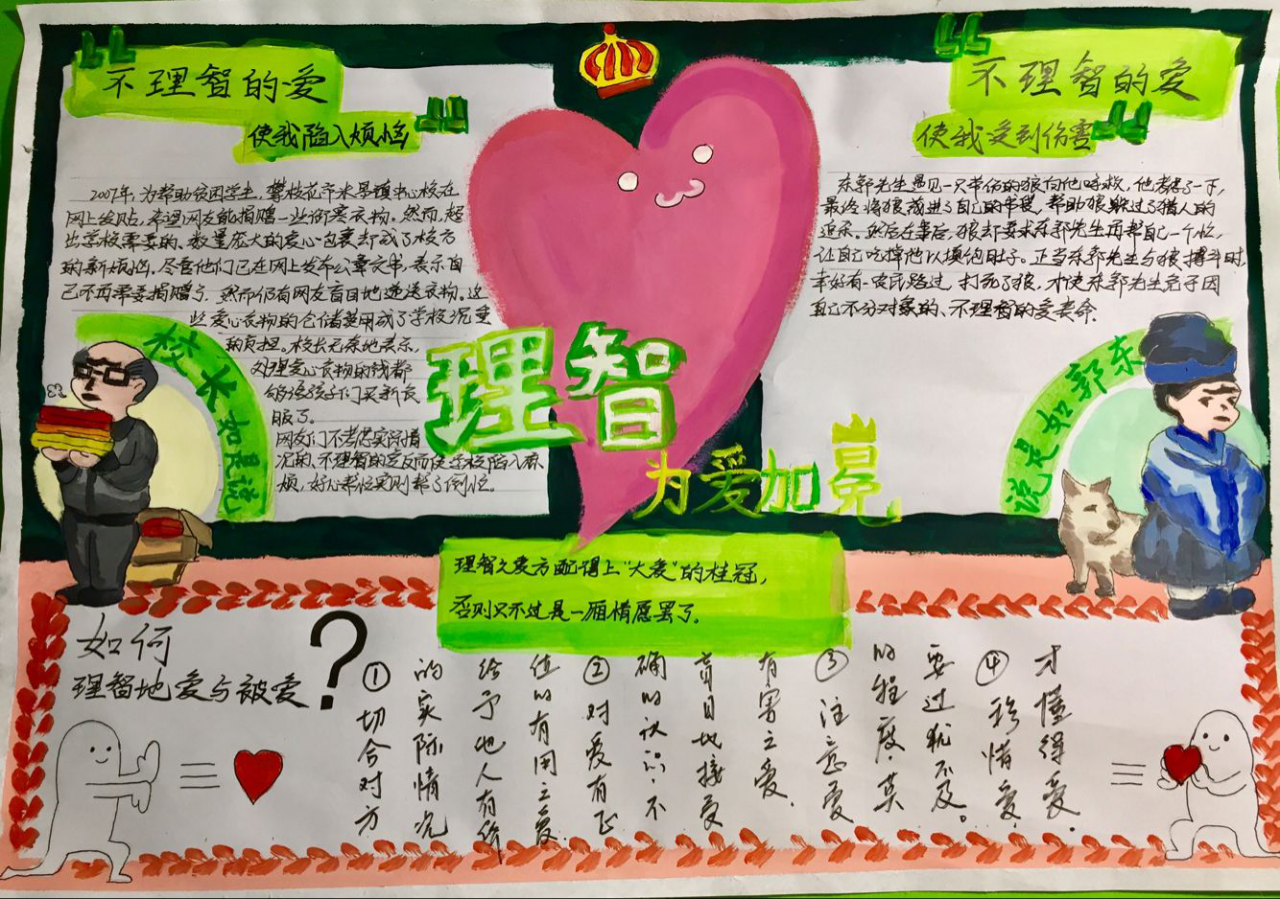 不理智的爱
使我陷入烦恼
2007年,为帮助贫困学生,攀枝花市米易镇中心校在
网上发贴,希望网友能捐赠一些御寒衣物。然而,超
出学校需要的、数量庞大的爱心包裹却成了校方
的新烦恼。尽管他们已在网上发布公章文书,表示自
己不再需要捐赠了,然而仍有网友盲目地递送衣物。这
些爱心衣物的仓储费用成了学校沉重
的负担。校长无奈地表示,
处理爱心衣物的钱都
够给孩子们买新衣
服了。
网友们不考虑实际情
况的、不理智的爱反而使学校陷入麻
烦,好心帮忙实则帮了倒忙。
校长如是说
理智
为爱加冕
不理智的爱
使我受到伤害
东郭先生遇见一只带伤的狼向他呼救,他考虑了一下,
最终将狼藏进了自己的书袋,帮助狼躲过了猎人的
追杀。然后在事后,狼却要求东郭先生再帮自己一个忙,
让自己吃掉他以填饱肚子。正当东郭先生与狼搏斗时,
幸好有一农民路过,打死了狼,才使东郭先生免于因
自己不分对象的、不理智的爱丧命.
东郭如是说
理智之爱方配得上“大爱”的桂冠,
否则只不过是一厢情愿罢了.
如何
理智地爱与被爱?
①切合对方
的实际情况
给予他人有价
值的有用之爱
②对爱有正
确的认识.不
盲目地接受
有害之爱.
③注意爱
的程度.莫
要过犹不及。
④珍惜爱,
才懂得爱.